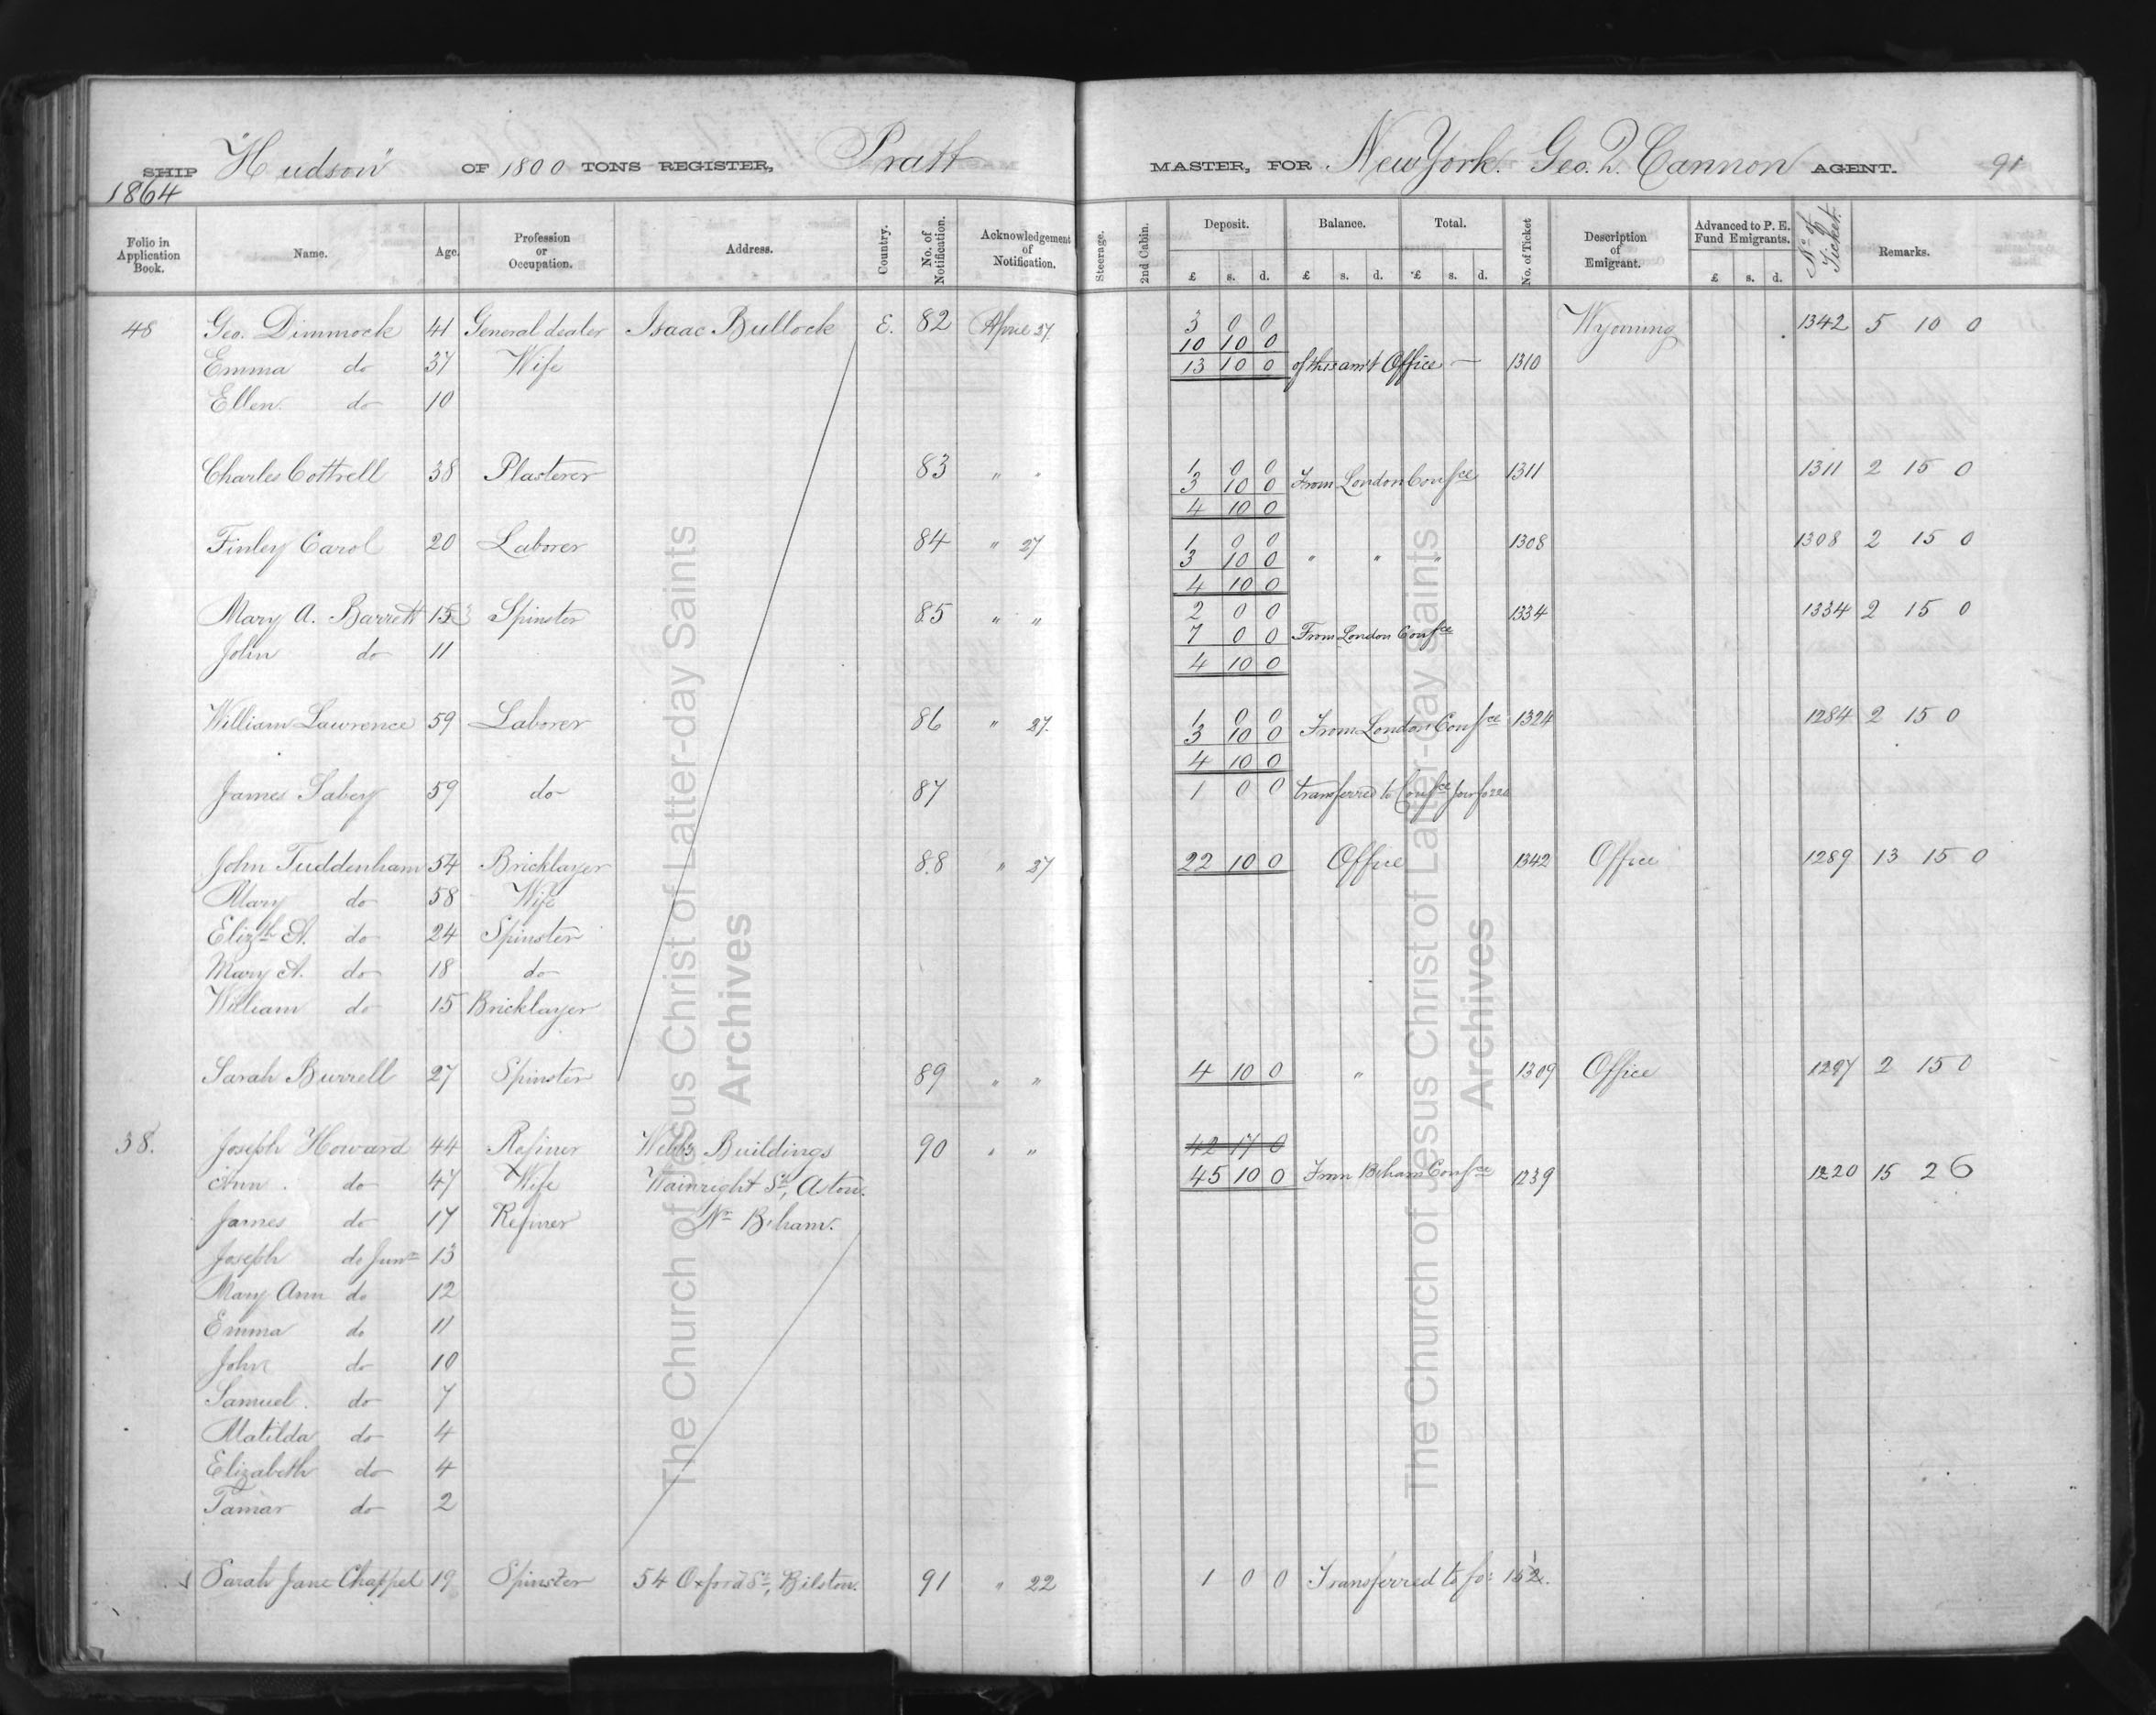 SHIP "Hudson" OF 1800 TONS REGISTER, Pratt MASTER, FOR New York. Geo. Q. Cannon AGENT. 91
1864
Folio in Application Book. Name. Age. Profession or Occupation. Address. Country. No. of Notification. Acknowledgement of Notification. Steerage. 2nd Cabin. Deposit. Balance. Total. No. of Ticket Description of Emigrant. Advanced to P. E. Fund Emigrants. No. of Ticket. Remarks.
£ s. d. £ s. d. £ s. d. £ s. d.
48 Geo. Dimmock 41 General dealer Isaac Bullock E. 82 April 27. 3 0 0 Wyoming 1342 5 10 0
10 10 0
Emma do 37 Wife 13 10 0 of this amt Office — 1310
Ellen do 10
Charles Cottrell 38 Plasterer 83 " " 1 0 0 1311 1311 2 15 0
3 10 0 From London Confce
4 10 0
Finley Carol 20 Laborer 84 " 27 1 0 0 1308 1308 2 15 0
3 10 0 " " "
4 10 0
Mary A. Barrett 15 Spinster 85 " " 2 0 0 1334 1334 2 15 0
7 0 0 From London Confce
John do 11 4 10 0
William Lawrence 59 Laborer 86 " 27. 1 0 0 1324 1284 2 15 0
3 10 0 From London Confce
4 10 0
James Sabey 59 do 87 1 0 0 transferred to Confce
John Tuddenham 54 Bricklayer 88 " 27 22 10 0 Office 1342 Office 1289 13 15 0
Mary do 58 Wife
Elizth A. do 24 Spinster
Mary A. do 18 do
William do 15 Bricklayer
Sarah Burrell 27 Spinster 89 " " 4 10 0 " 1309 Office 1297 2 15 0
38. Joseph Howard 44 Refiner Webbs Buildings 90 " " 42 17 0
Ann do 47 Wife Wainright St, Aston. 45 10 0 From B'ham Confce 1239 1220 15 2 6
James do 17 Refiner Nr B'ham.
Joseph do Junr 13
Mary Ann do 12
Emma do 11
John do 10
Samuel do 7
Matilda do 4
Elizabeth do 4
Tamar do 2
Sarah Jane Chappel 19 Spinster 54 Oxford St, Bilston. 91 " 22 1 0 0 Transferred to fo:
The Church of Jesus Christ of Latter-day Saints
Archives
The Church of Jesus Christ of Latter-day Saints
Archives